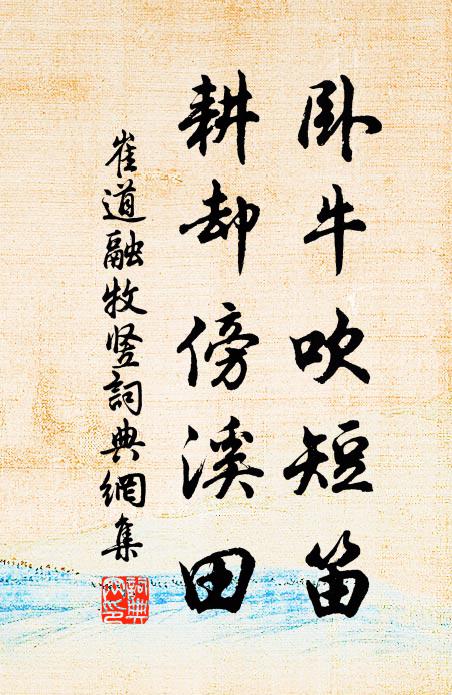 卧牛吹短笛
耕却傍溪田
崔道融牧竖詞典網集